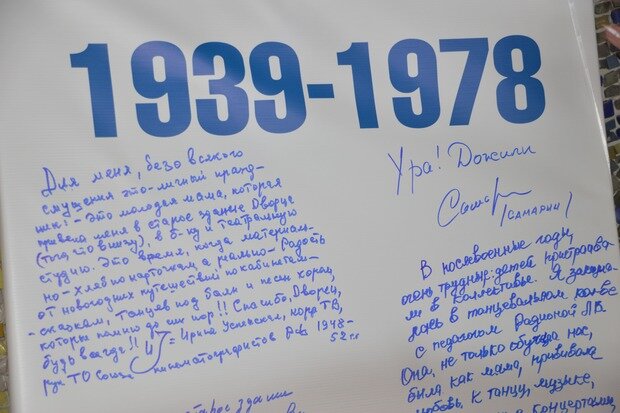 1939-1978
Для меня, безо всякого
смущения это-личный празд-
ник! - Это молодая мама, которая
привела меня в старое здание Дворца
(того что внизу), в б-ку и театральную
студию. Это время, когда материаль-
но - хлеб по карточкам, а реально - радость
от новогодних путешествий по кабинетам-
- сказкам, танцев под баян и песни хором,
которые помню до сих пор!! Спасибо, Дворец,
будь всегда!! = Ирина Успенская, корр ТВ,
рук ТО Союза кинематографистов 1948-
52 гг
Ура! Дожили
(САМАРИН)
В послевоенные годы,
очень трудные, детей приглашa-
ли в коллективы. Я занима-
лась в танцевальном кол-ве
с педагогом Радиной Л.В.
Она, не только обучала нас,
была как мама, прививала
любовь к танцу, музыке,
концертами,
старое здание